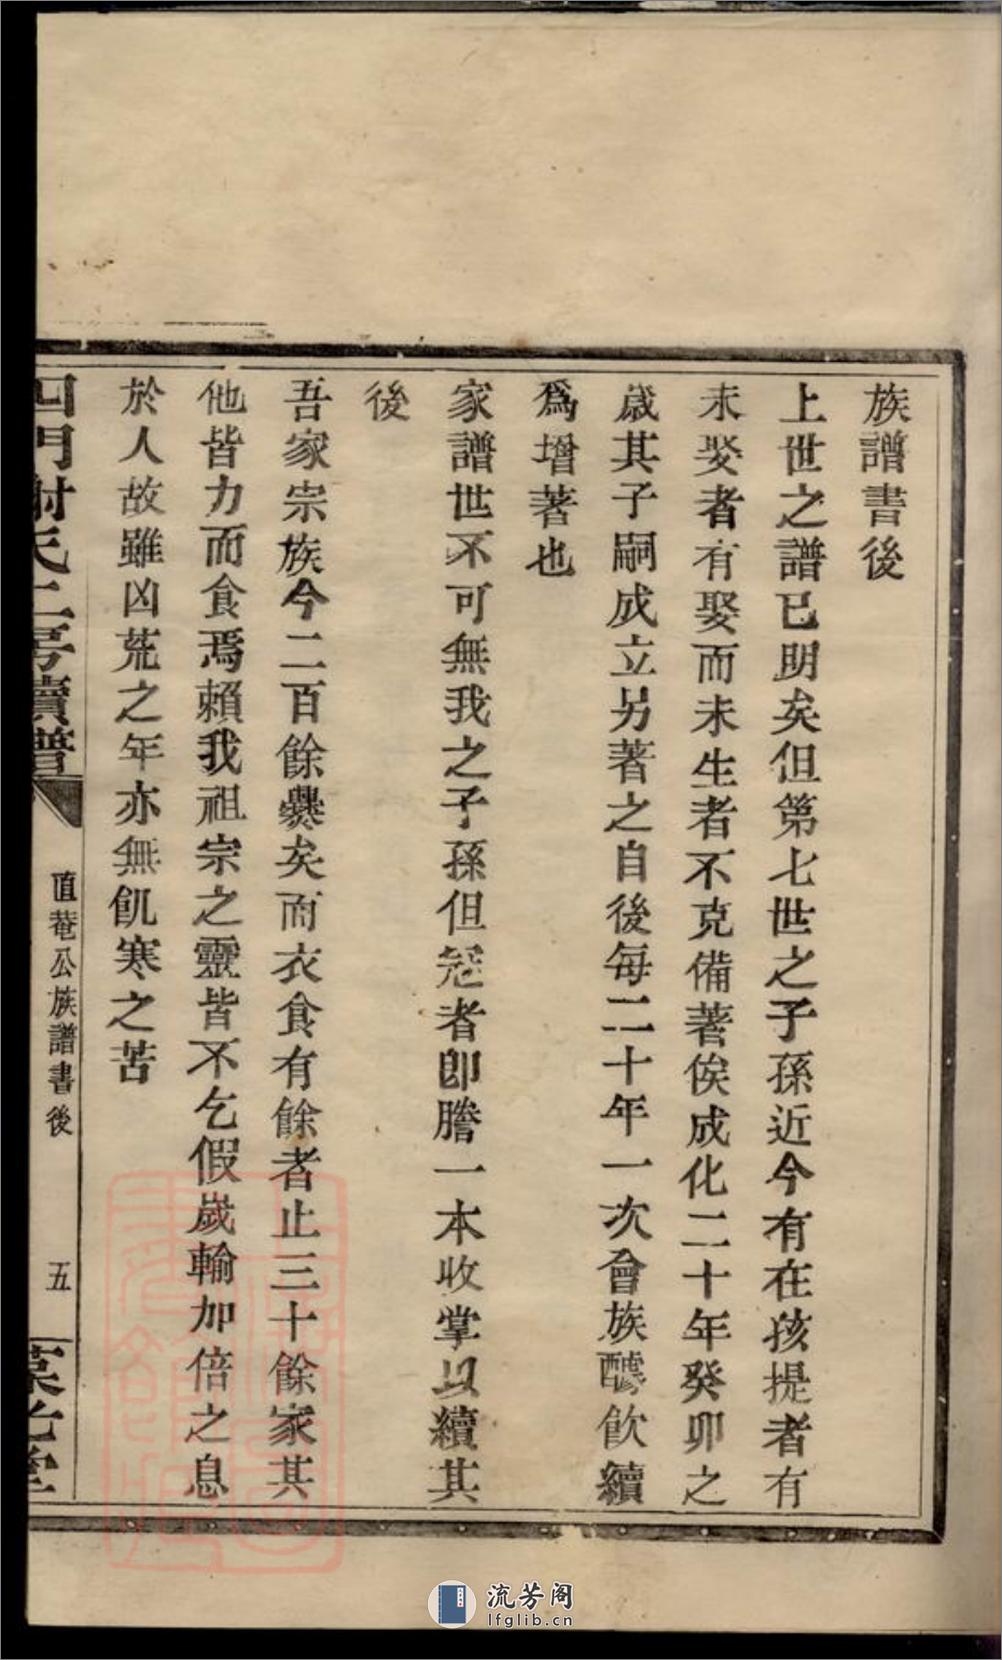 族譜書後
上世之譜已明矣但第七世之子孫近今有在孩提者有
未娶者有娶而未生者不克備著俟成化二十年癸卯之
歲其子嗣成立另著之自後每二十年一次會族醵飲續
為增著也
家譜世不可無我之子孫但冠者即謄一本收掌以續其
後
吾家宗族今二百餘爨矣而衣食有餘者止三十餘家其
他皆力而食焉賴我祖宗之靈皆不乞假歲輸加倍之息
於人故雖凶荒之年亦無飢寒之苦
四門謝氏二房續譜
直菴公族譜書後
五
流芳阁
lfglib.cn